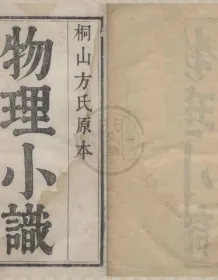 桐山方氏原本
物理小識